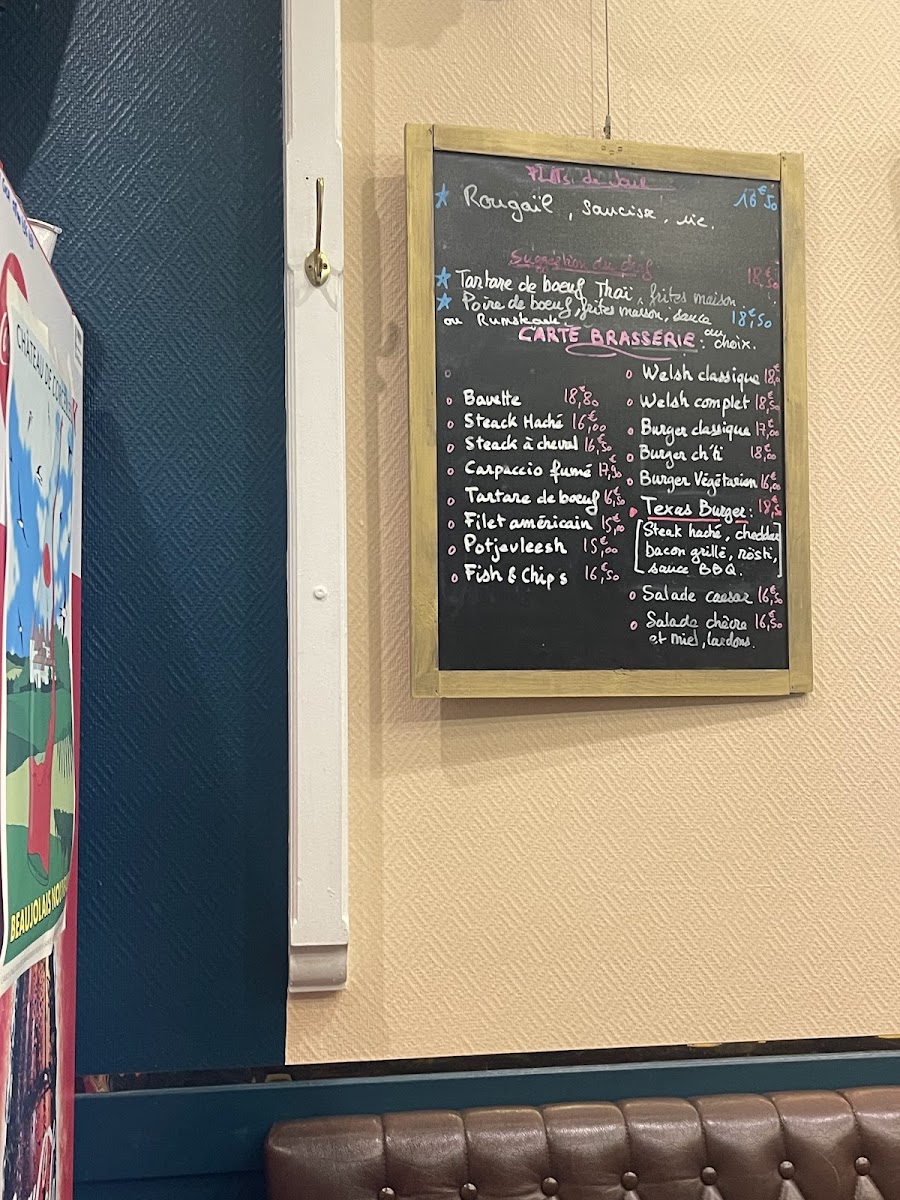 Plats du Jour
Rougail, saucisse, riz. 16€50
Suggestion du chef
Tartare de boeuf Thaï, frites maison 18€50
Poire de boeuf, frites maison, sauce 18€50
ou Rumsteak au choix.
CARTE BRASSERIE:
Bavette 18€80
Steack Haché 16€00
Steack à cheval 16€50
Carpaccio fumé 17€90
Tartare de boeuf 16€50
Filet américain 15€00
Potjevleesh 15€00
Fish & Chips 16€50
Welsh classique 18€
Welsh complet 18€50
Burger classique 17€00
Burger ch'ti 18€00
Burger Végétarien 16€00
Texas Burger: 18€50
[Steak haché, cheddar
bacon grillé, rösti,
sauce BBQ.]
Salade caesar 16€50
Salade chèvre 16€50
et miel, lardons.
CHATEAU DE
BEAUJOLAIS